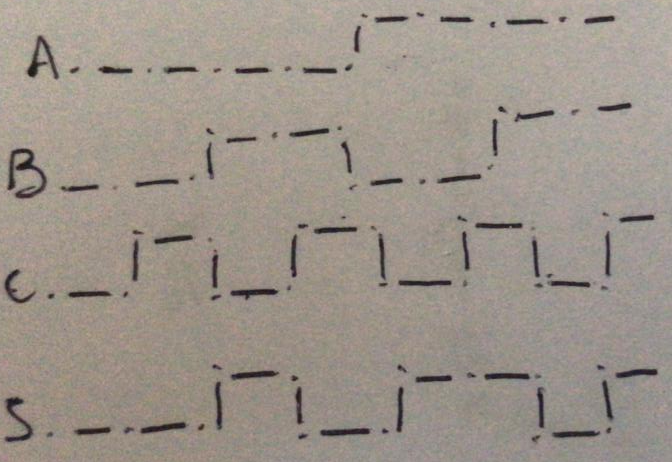 A
B
C
S